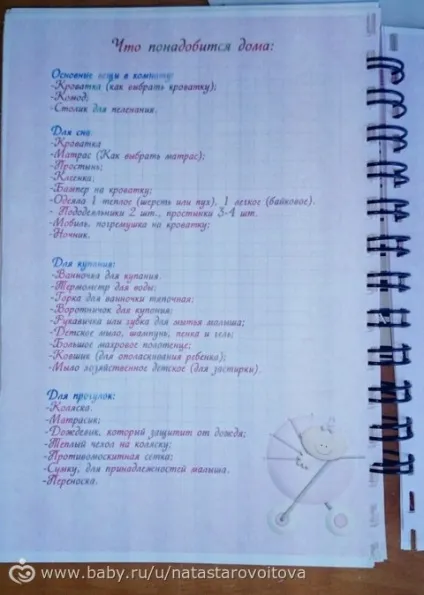 Что понадобится дома:
Основные вещи в комнату:
-Кроватка (как выбрать кроватку);
-Комод;
-Столик для пеленания.
Для сна:
-Кроватка
-Матрас (Как выбрать матрас);
-Простынь;
-Клеенка;
-Бампер на кроватку;
-Одеяла 1 теплое (шерсть или пух), 1 легкое (байковое).
- Пододеяльники 2 шт., простынки 3-4 шт.
-Мобиль, погремушка на кроватку;
-Ночник.
Для купания:
-Ванночка для купания.
-Термометр для воды;
-Горка для ванночки тряпочная;
-Воротничок для купания;
-Рукавичка или губка для мытья малыша;
-Детское мыло, шампунь, пенка и гель;
-Большое махровое полотенце;
-Ковшик (для ополаскивания ребенка);
-Мыло хозяйственное детское (для застирки).
Для прогулок:
-Коляска.
-Матрасик;
-Дождевик, который защитит от дождя;
-Теплый чехол на коляску;
-Противомоскитная сетка;
-Сумку, для принадлежностей малыша.
-Переноска.
www.baby.ru/u/natastarovoitova